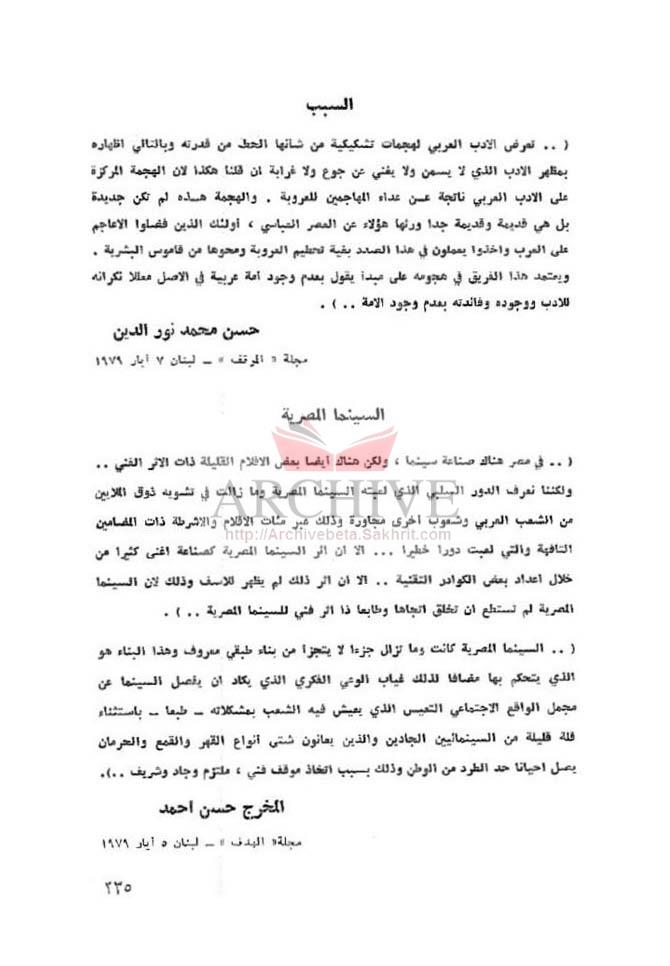 السبب
( . . تعرض الادب العربي لهجمات تشكيكية من شانها الحط من قدرته وبالتالي اظهاره
بمظهر الادب الذي لا يسمن ولا يغني عن جوع ولا غرابة ان قلنا هكذا لان الهجمة المركزة
على الادب العربي ناتجة عسن عداء المهاجمين للعروبة . والهجمة هسذه لم تكن جديدة
بل هي قديمة وقديمة جدا ورثها هؤلاء عن العصر العباسي ، أولئك الذين فضلوا الاعاجم
على العرب واخذوا يعملون في هذا الصدد بغية تحطيم العروبة ومحوها من قاموس البشرية .
ويعتمد هذا الفريق في هجومه على مبدأ يقول بعدم وجود أمة عربية في الاصل معللا نكرانه
للادب ووجوده وفائدته بعدم وجود الامة . . ) .
حسن محمد نور الدين
مجلة « الموقف » ــ لبنان ٧ أيار ١٩٧٩
السينما المصرية
( . . في مصر هناك صناعة سينما ، ولكن هناك أيضا بعض الافلام القليلة ذات الاثر الفني . .
ولكننا نعرف الدور السلبي الذي لعبته السينما المصرية وما زالت في تشويه ذوق الملايين
من الشعب العربي وشعوب أخرى مجاورة وذلك عبر مئات الافلام والاشرطة ذات المضامين
التافهة والتي لعبت دورا خطيرا . . . الا ان اثر السينما المصرية كصناعة اغنى كثيرا من
خلال اعداد بعض الكوادر التقنية . . الا ان اثر ذلك لم يظهر للاسف وذلك لان السينما
المصرية لم تستطع ان تخلق اتجاها وطابعا ذا اثر فني للسينما المصرية . . ) .
( . . السينما المصرية كانت وما تزال جزءا لا يتجزأ من بناء طبقي معروف وهذا البناء هو
الذي يتحكم بها مضافا لذلك غياب الوعي الفكري الذي يكاد ان يفصل السينما عن
مجمل الواقع الاجتماعي التعيس الذي يعيش فيه الشعب بمشكلاته ــ طبعا ــ باستثناء
قلة قليلة من السينمائيين الجادين والذين يعانون شتى أنواع القهر والقمع والحرمان
يصل احيانا حد الطرد من الوطن وذلك بسبب اتخاذ موقف فني ، ملتزم وجاد وشريف . . ) .
المخرج حسن احمد
مجلة « الهدف » ــ لبنان ٥ أيار ١٩٧٩
٢٣٥
ARCHIVE
http://Archivebeta.Sakhrit.com